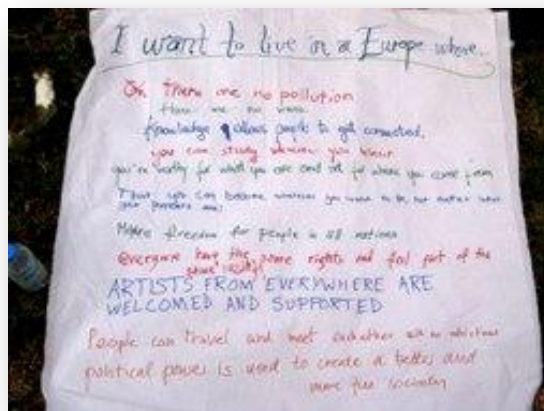 I want to live in a Europe where..
There are no pollution
There are no wars
Knowledge allows people to get connected.
you can study wherever you
you're worthy for what you are and not for where you come from
That you can become whatever you want to be, not matter what
your parents are!
More freedom for people in all nations
everyone have the same rights and feel part of the
same
ARTISTS FROM EVERYWHERE ARE
WELCOMED AND SUPPORTED
People can travel and meet eachother with no
political power is used to create a better and
more free